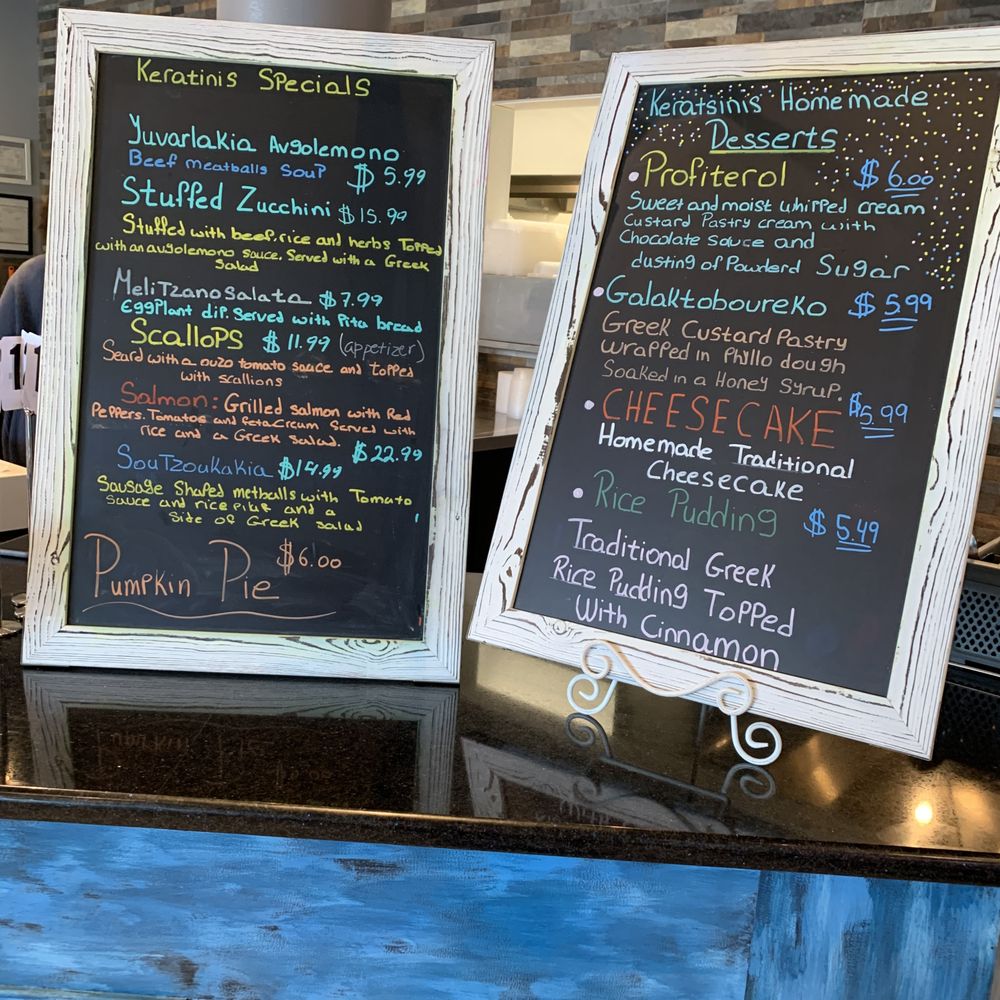 Keratinis Specials
Yuvarlakia Avgolemono
Beef meatballs Soup $5.99
Stuffed Zucchini $15.99
Stuffed with beef, rice and herbs Topped
with an avgolemono sauce. Served with a Greek
Salad
MeliTzanoSalata $7.99
EggPlant dip. Served with Pita bread
ScalloPS $11.99 (appetizer)
Seard with a ouzo tomato sauce and topped
with scallions
Salmon: Grilled salmon with Red
Peppers. Tomatos and feta cream Served with
rice and a Greek Salad.
$22.99
SouTzoukakia $14.99
Sausage Shaped metballs with Tomato
Sauce and rice pilaf and a
Side of Greek salad
Pumpkin Pie $6.00
Keratsinis Homemade
Desserts
• Profiterol $6.00
Sweet and moist whipped cream
Custard Pastry cream with
Chocolate sauce and
dusting of Powderd Sugar
• Galaktoboureko $5.99
Greek Custard Pastry
wrapped in Phyllo dough
Soaked in a Honey Syrup.
• CHEESECAKE $5.99
Homemade Traditional
Cheesecake
• Rice Pudding $5.49
Traditional Greek
Rice Pudding Topped
With Cinnamon